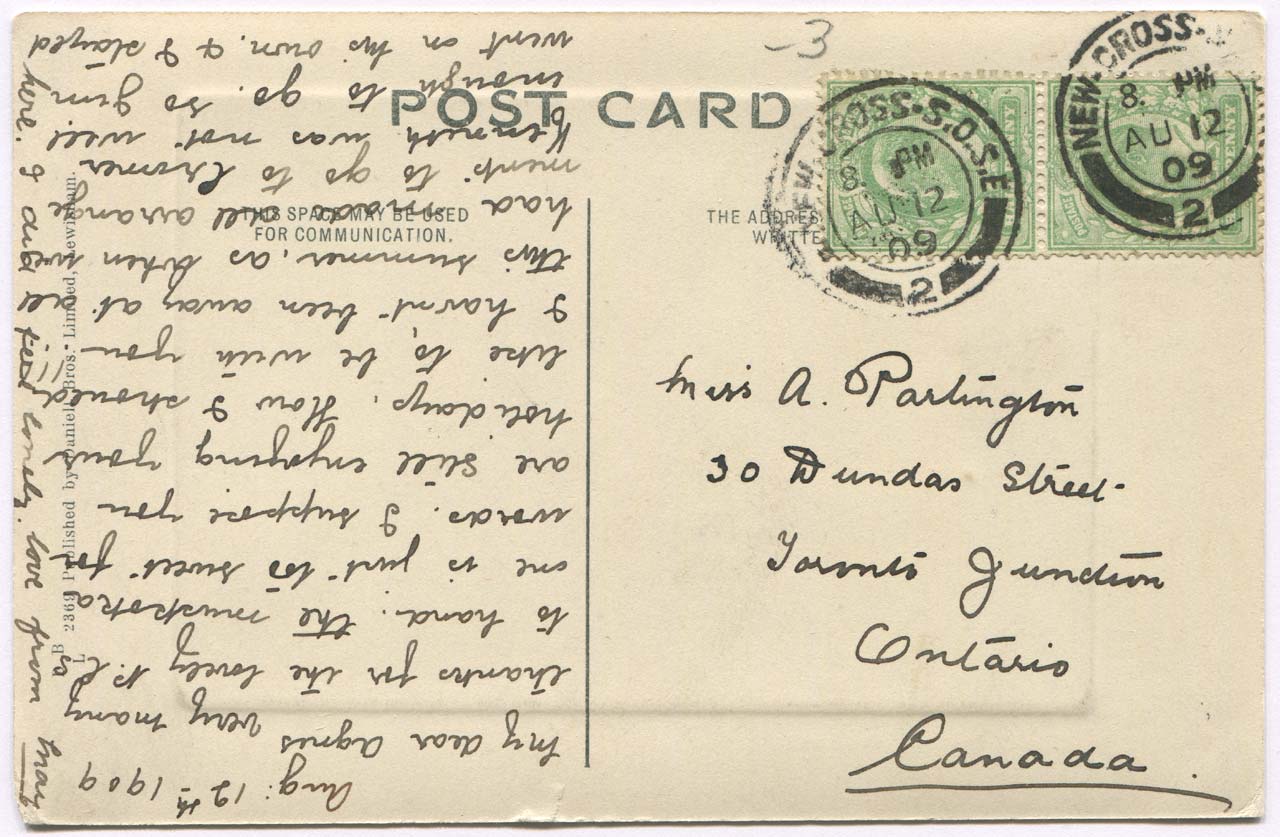 -3
POST CARD
THIS SPACE MAY BE USED
FOR COMMUNICATION.
THE ADDRESS
WRITTE
NEW-CROSS-S.O.S.E
8. PM
AU 12
09
2
NEW-CROSS-
8. PM
AU 12
09
2
Miss A. Partington
30 Dundas Street
Toronto Junction
Ontario
Canada.
Aug: 12th 1909
My dear Agnes very many
thanks for the lovely P.Cs
to hand. the muskoka
one is just too sweet for
words. I suppose you
are still enjoying your
holidays. How I should
like to, be with you
I havnt been away at
this summer, as when we
had made all arrange
ments to go to Cromer
Kenneth was not well
enough to go. so Jim
went on his own. & I stayed
here. I did feel all lonely. love from May
B 2369 Published by Daniell Bros. Limited, Lewisham.
L